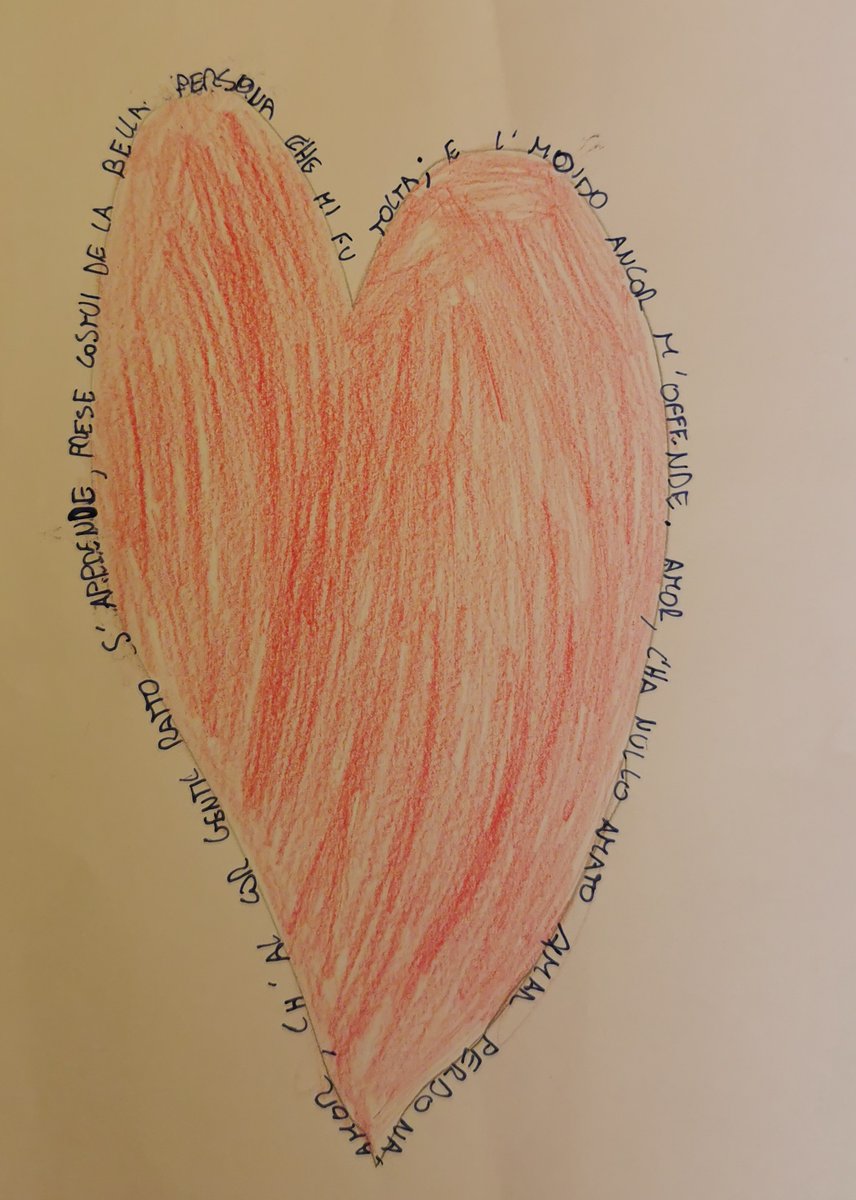 AMOR, CH'AL COR GENTIL RATTO S'APPRENDE, PRESE COSTUI DE LA BELLA PERSONA CHE MI FU TOLTA; E L'MODO ANCOR M'OFFENDE. AMOR, CHA NULLO AMATO AMAR PERDONA,